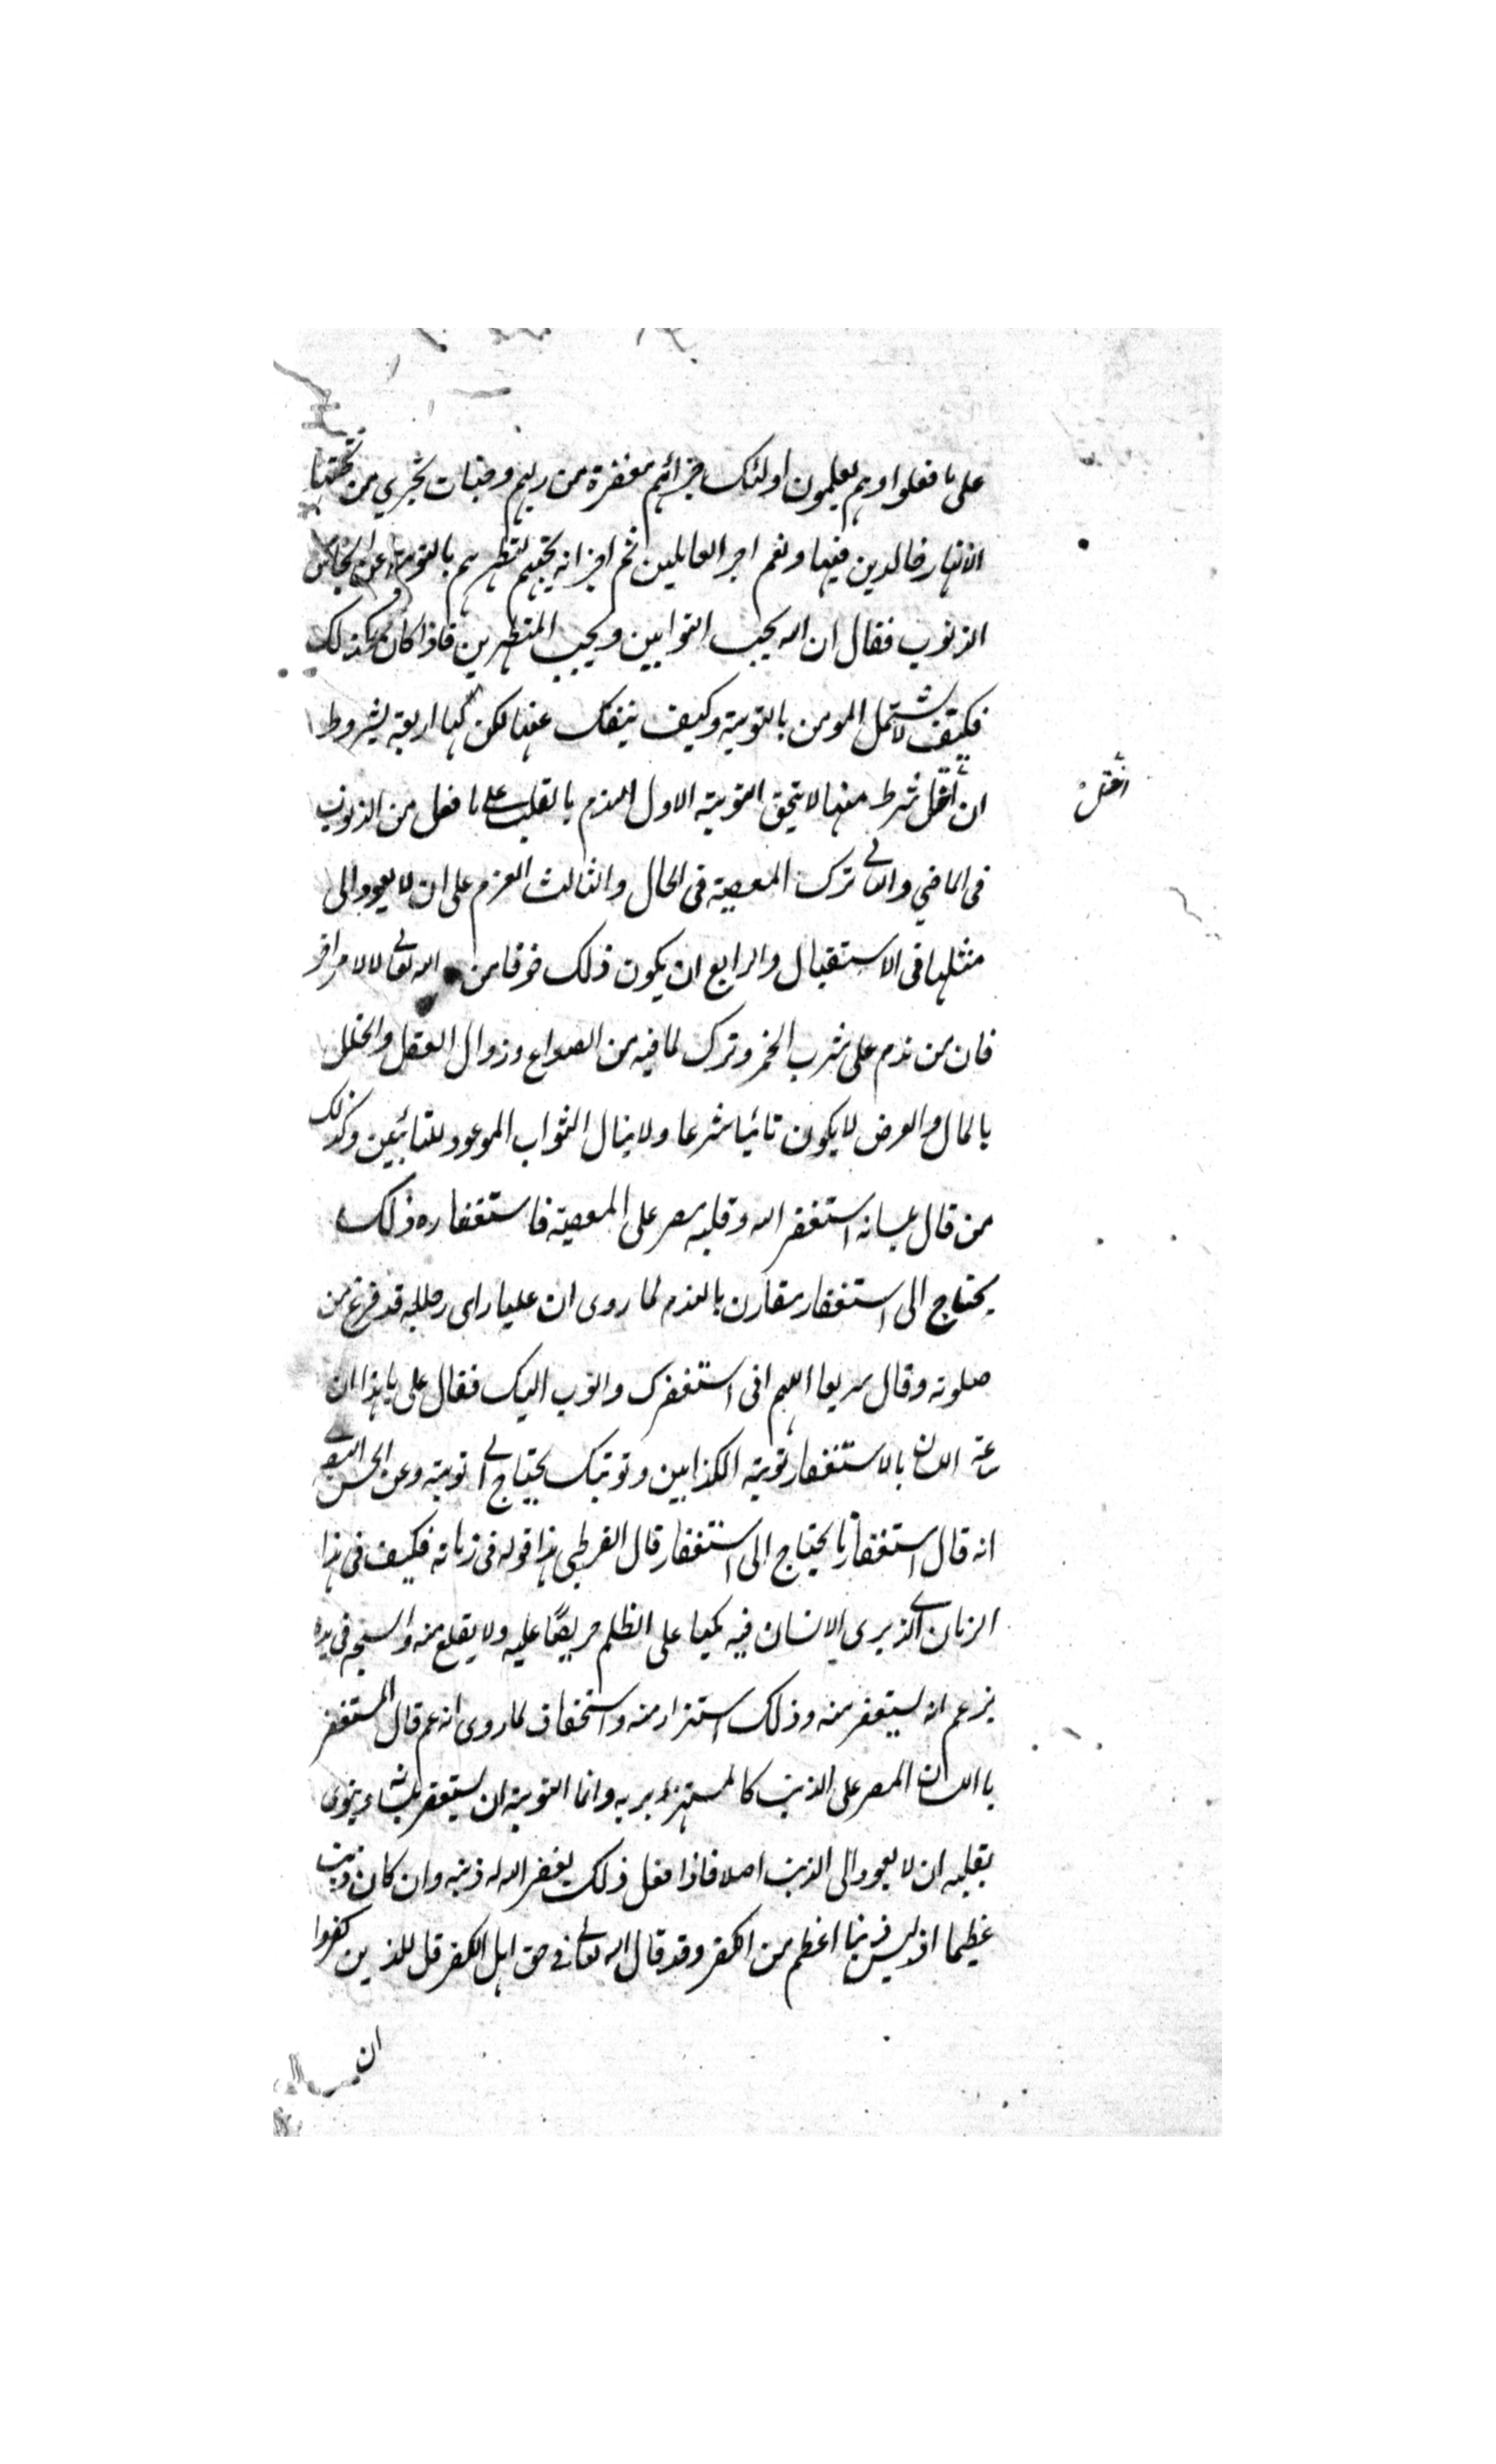 على ما فعلوا وهم يعلمون اولئك جزائهم مغفرة من ربهم وجنات تجري من تحتها
الانهار خالدين فيها ونعم اجر العاملين ثم اخبر انه يحبهم لتطهرهم بالتوبة عن انجاس
الذنوب فقال ان الله يحب التوابين ويحب المتطهرين فاذا كان كذلك
فكيف لا يشتمل المومن بالتوبة وكيف ينفك عنها لكن لها اربعة شروط
ان اختل شرط منها لا يتحقق التوبة الاول الندم بالقلب على ما فعل من الذنوب
اختل
فى الماضي والثانى ترك المعصية فى الحال والثالث العزم على ان لا يعود الى
مثلها فى الاستقبال والرابع ان يكون ذلك خوفا من الله تعالى لا لامر اخر
فان من ندم على شرب الخمر وترك لما فيه من الصداع وزوال العقل والخلل
بالمال والعرض لا يكون تائبا شرعا ولا ينال الثواب الموعود للتائبين وكذلك
من قال بلسانه استغفر الله وقلبه مصر على المعصية فاستغفاره ذلك
يحتاج الى استغفار مقارن بالندم لما روى ان عليا راى رجلا قد فرغ من
صلوته وقال سريعا اللهم انى استغفرك واتوب اليك فقال على يا هذا ان
سرعة اللسان بالاستغفار توبة الكذابين وتوبتك يحتاج الى توبة وعن الحسن البصرى
انه قال استغفارنا يحتاج الى استغفار قال القرطبى هذا قوله فى زمانه فكيف فى هذا
الزمان الذى يرى الانسان فيه مكبا على الظلم حريصًا عليه ولا يقلع منه والسبحة فى يده
يزعم انه يستغفر منه وذلك استهزاء منه واستخفاف لما روى انه عم قال المستغفر
باللسان المصر على الذنب كالمستهزء بربه وانما التوبة ان يستغفر بلسانه وينوى
بقلبه ان لا يعود الى الذنب اصلا فاذا فعل ذلك يغفر الله له ذنبه وان كان ذنبه
عظيما اذ ليس ذنبا اعظم من الكفر وقد قال الله تعالى فى حق اهل الكفر قل للذين كفروا
ان